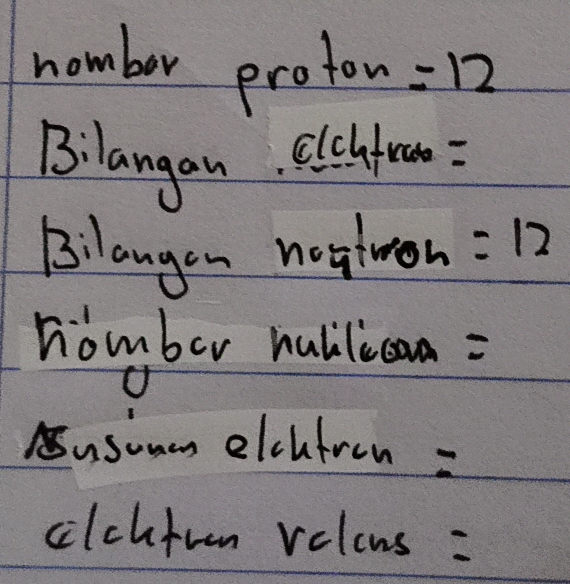 nombor proton = 12
Bilangan elektron =
Bilangan neutron = 12
nombor nukleon =
Susunan elektron =
elektron valens =